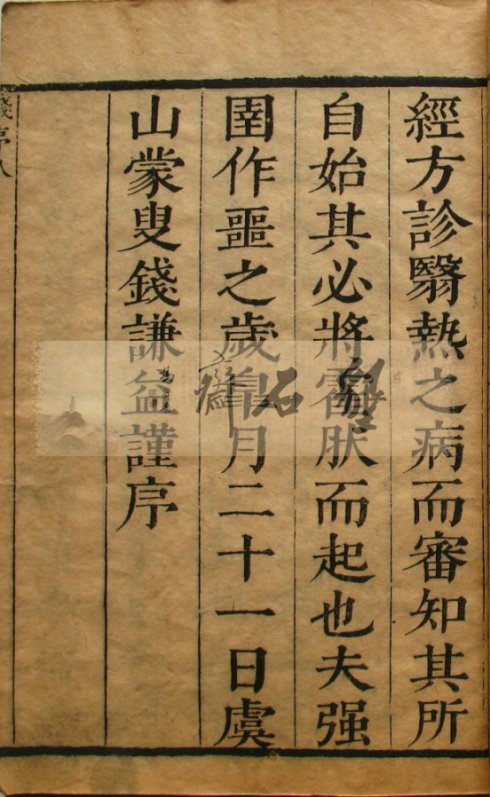 經方診翳熱之病而審知其所
自始其必將霍肰而起也夫强
圉作噩之歲皐月二十一日虞
山蒙叟錢謙益謹序
序八
石